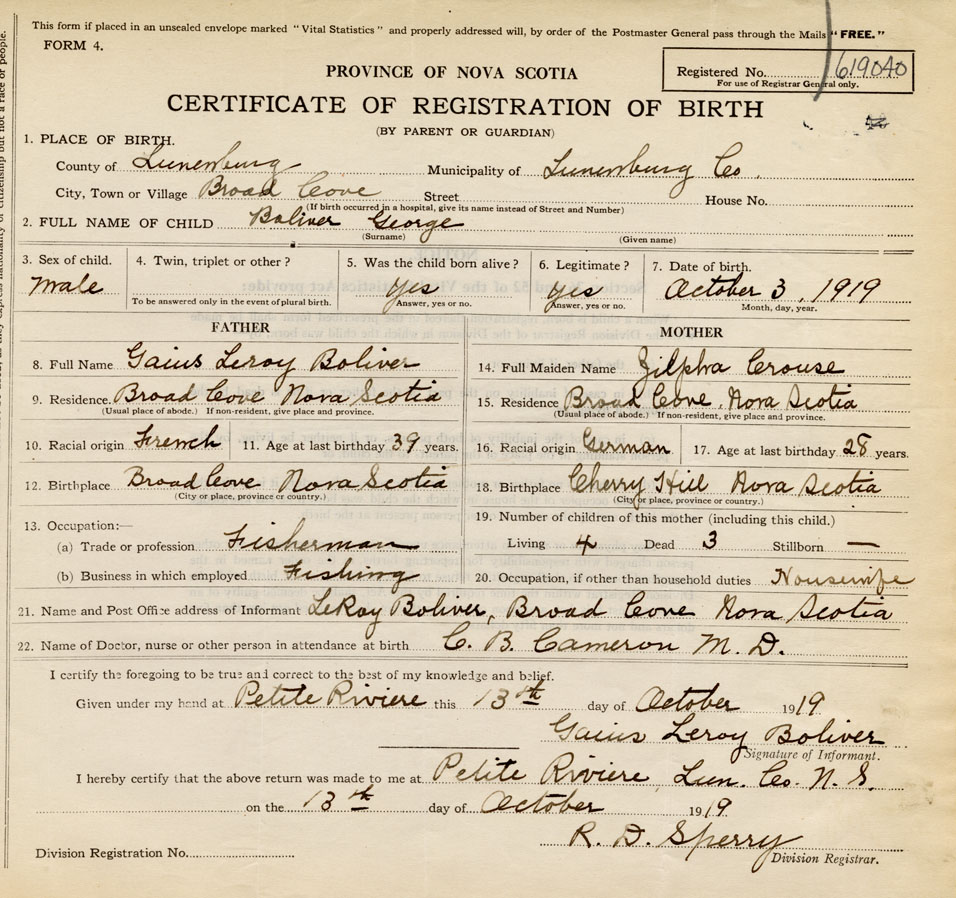 This form if placed in an unsealed envelope marked "Vital Statistics" and properly addressed will, by order of the Postmaster General pass through the Mails "FREE."
FORM 4.
Registered No. 619040
For use of Registrar General only.
PROVINCE OF NOVA SCOTIA
CERTIFICATE OF REGISTRATION OF BIRTH
(BY PARENT OR GUARDIAN)
1. PLACE OF BIRTH.
County of Lunenburg Municipality of Lunenburg Co.
City, Town or Village Broad Cove Street House No.
(If birth occurred in a hospital, give its name instead of Street and Number)
2. FULL NAME OF CHILD Boliver George
(Surname) (Given name)
3. Sex of child. 4. Twin, triplet or other? 5. Was the child born alive? 6. Legitimate? 7. Date of birth.
Male yes yes October 3, 1919
To be answered only in the event of plural birth. Answer, yes or no. Answer, yes or no. Month, day, year.
FATHER
8. Full Name Gaius Leroy Boliver
9. Residence. Broad Cove Nova Scotia
(Usual place of abode.) If non-resident, give place and province.
10. Racial origin French 11. Age at last birthday 39 years.
12. Birthplace Broad Cove Nova Scotia
(City or place, province or country.)
13. Occupation:—
(a) Trade or profession Fisherman
(b) Business in which employed Fishing
MOTHER
14. Full Maiden Name Zilpha Crouse
15. Residence Broad Cove, Nova Scotia
(Usual place of abode.) If non-resident, give place and province.
16. Racial origin German 17. Age at last birthday 28 years.
18. Birthplace Cherry Hill Nova Scotia
(City or place, province or country.)
19. Number of children of this mother (including this child.)
Living 4 Dead 3 Stillborn —
20. Occupation, if other than household duties Housewife
21. Name and Post Office address of Informant LeRoy Boliver, Broad Cove Nova Scotia
22. Name of Doctor, nurse or other person in attendance at birth C. B. Cameron M. D.
I certify the foregoing to be true and correct to the best of my knowledge and belief.
Given under my hand at Petite Riviere this 13th day of October 1919
Gaius Leroy Boliver
Signature of Informant.
I hereby certify that the above return was made to me at Petite Riviere Lun. Co. N. S.
on the 13th day of October 1919
R. D. Sperry
Division Registrar.
Division Registration No.